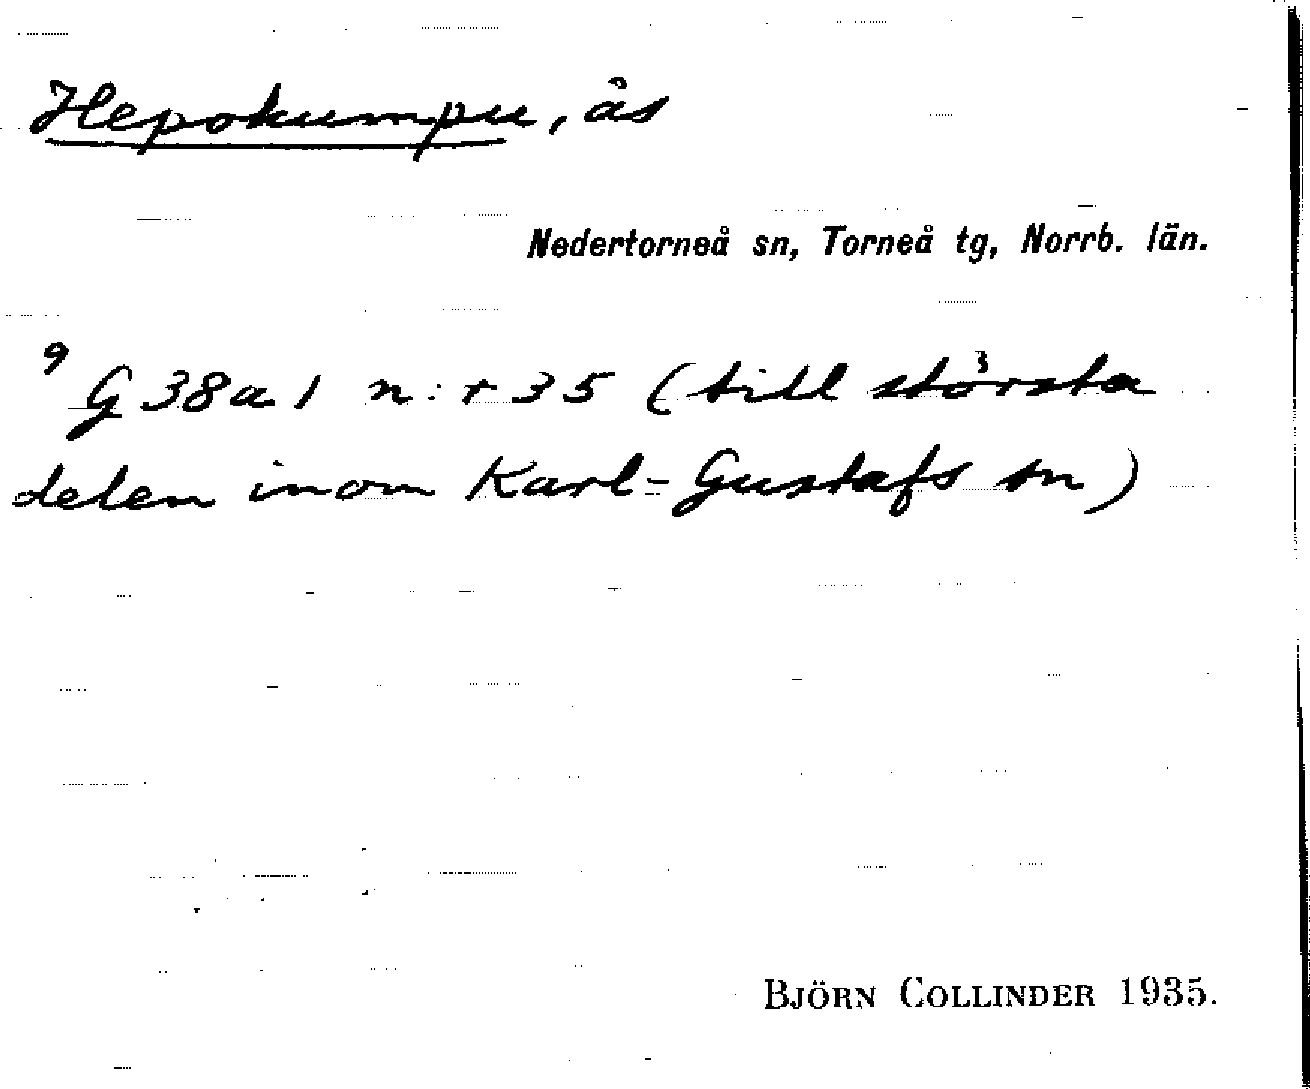 Hepokumpu, ås
Nedertorneå sn, Torneå tg, Norrb. län.
9 G 38 a 1 n:r 35 (till största
delen inom Karl-Gustafs sn)
BJÖRN COLLINDER 1935.